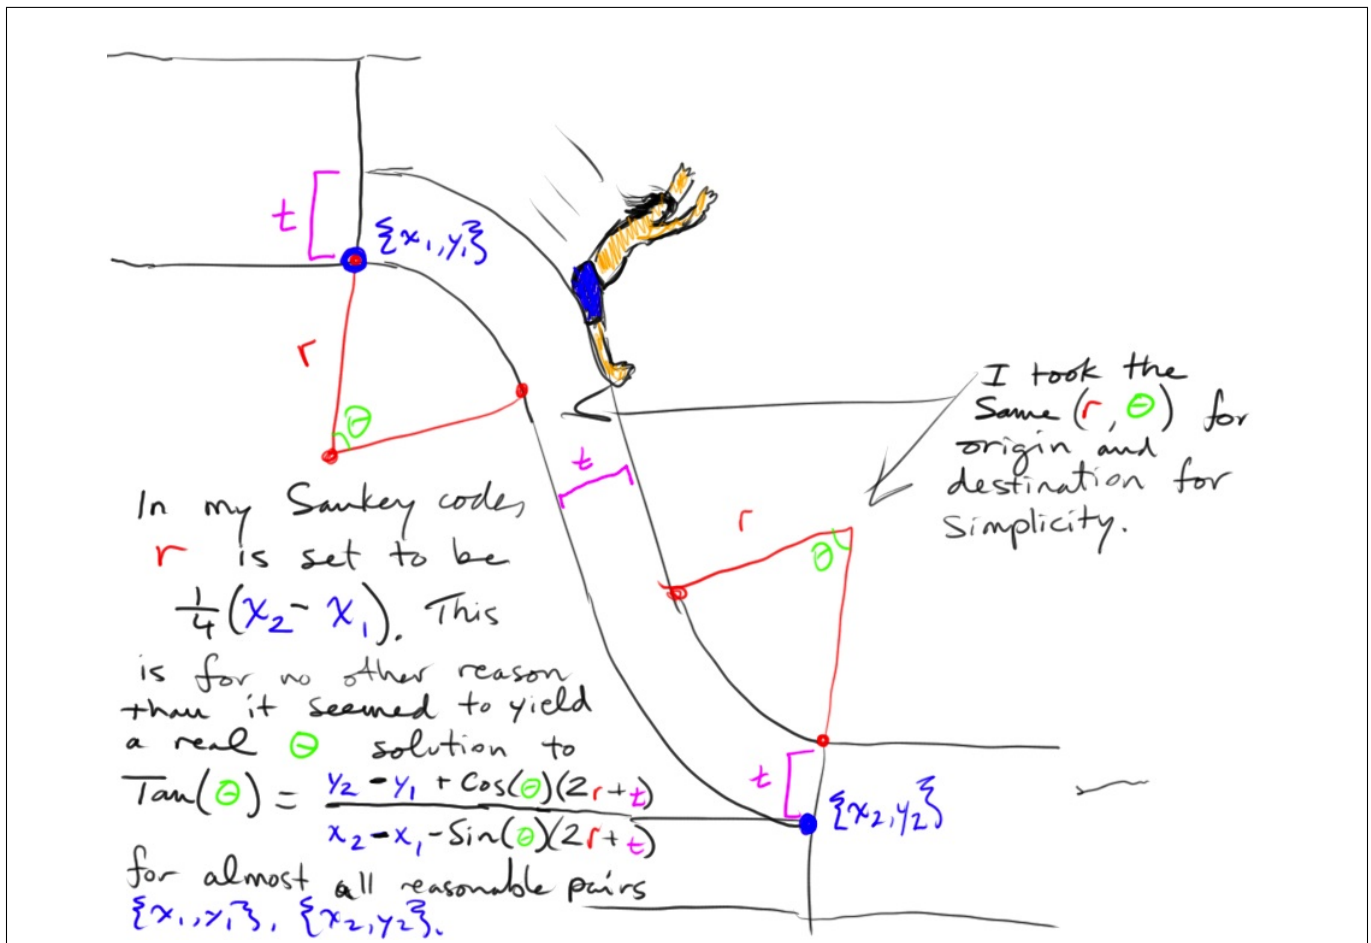 t
{x₁,y₁}
r
θ
I took the
Same (r, θ) for
origin and
destination for
simplicity.
t
r
θ
In my Sankey code,
r is set to be
1/4(x₂ - x₁). This
is for no other reason
than it seemed to yield
a real θ solution to
Tan(θ) = (y₂ - y₁ + Cos(θ)(2r+t)) / (x₂ - x₁ - Sin(θ)(2r+t))
for almost all reasonable pairs
{x₁,y₁}, {x₂,y₂}.
t
{x₂,y₂}